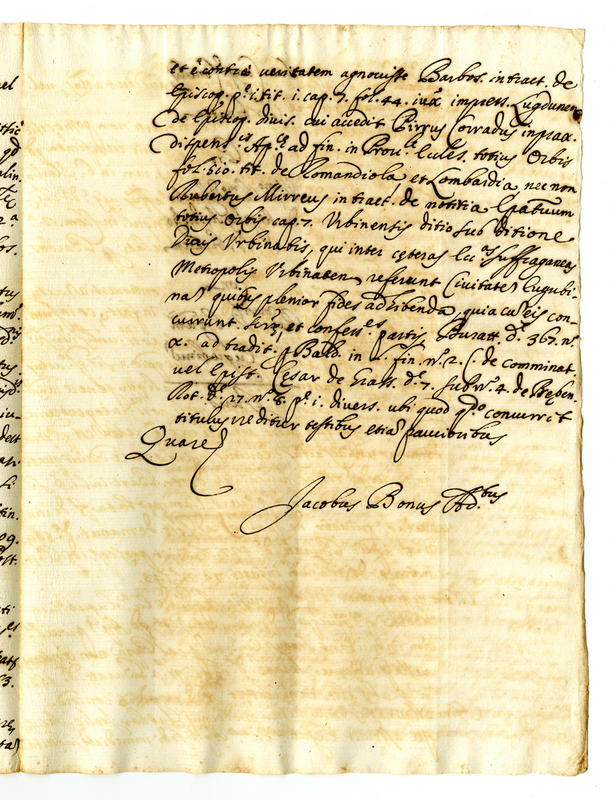 et è contra veritatem agnoviste Barbos. in tract. de
Episcop. p.e 1. tit. 1. cap. 7. fol. 44. iux.a impress. Lugdunen
de Episcop. divis. cui accedit Pirrus Corradus in prax.
dispens.is Ap.cis ad fin. in Provi.e Eccles. totius Orbis
fol. 510. tit. de Romandiola, et Lombardia nec non
Aubertus Mirreus in tract. de notitia Epatuum
totius Orbis cap. 7. Urbinensis ditio sub ditione
Ducis Urbinatis, qui inter cęteras Ecc.as suffraganeas
Metropolis Urbinaten referunt Civitates Eugubi-
nas quibus plenior fides adhibenda, quia cu eis con-
currunt et confess.es partis Buratt. d. 367. n.o
X. ad tradit. p Bald. in L. fin. n.o 2. C. de comminat.
vel Epist. Cesar de Grass. d.e 7. sub n.o 4. de Preben.
Rot. d.e 17. n.o 8. p.e 1. divers. ubi quod q.do concurrit
titulus creditur testibus etia paucioribus
Quare
Jacobus Bonus